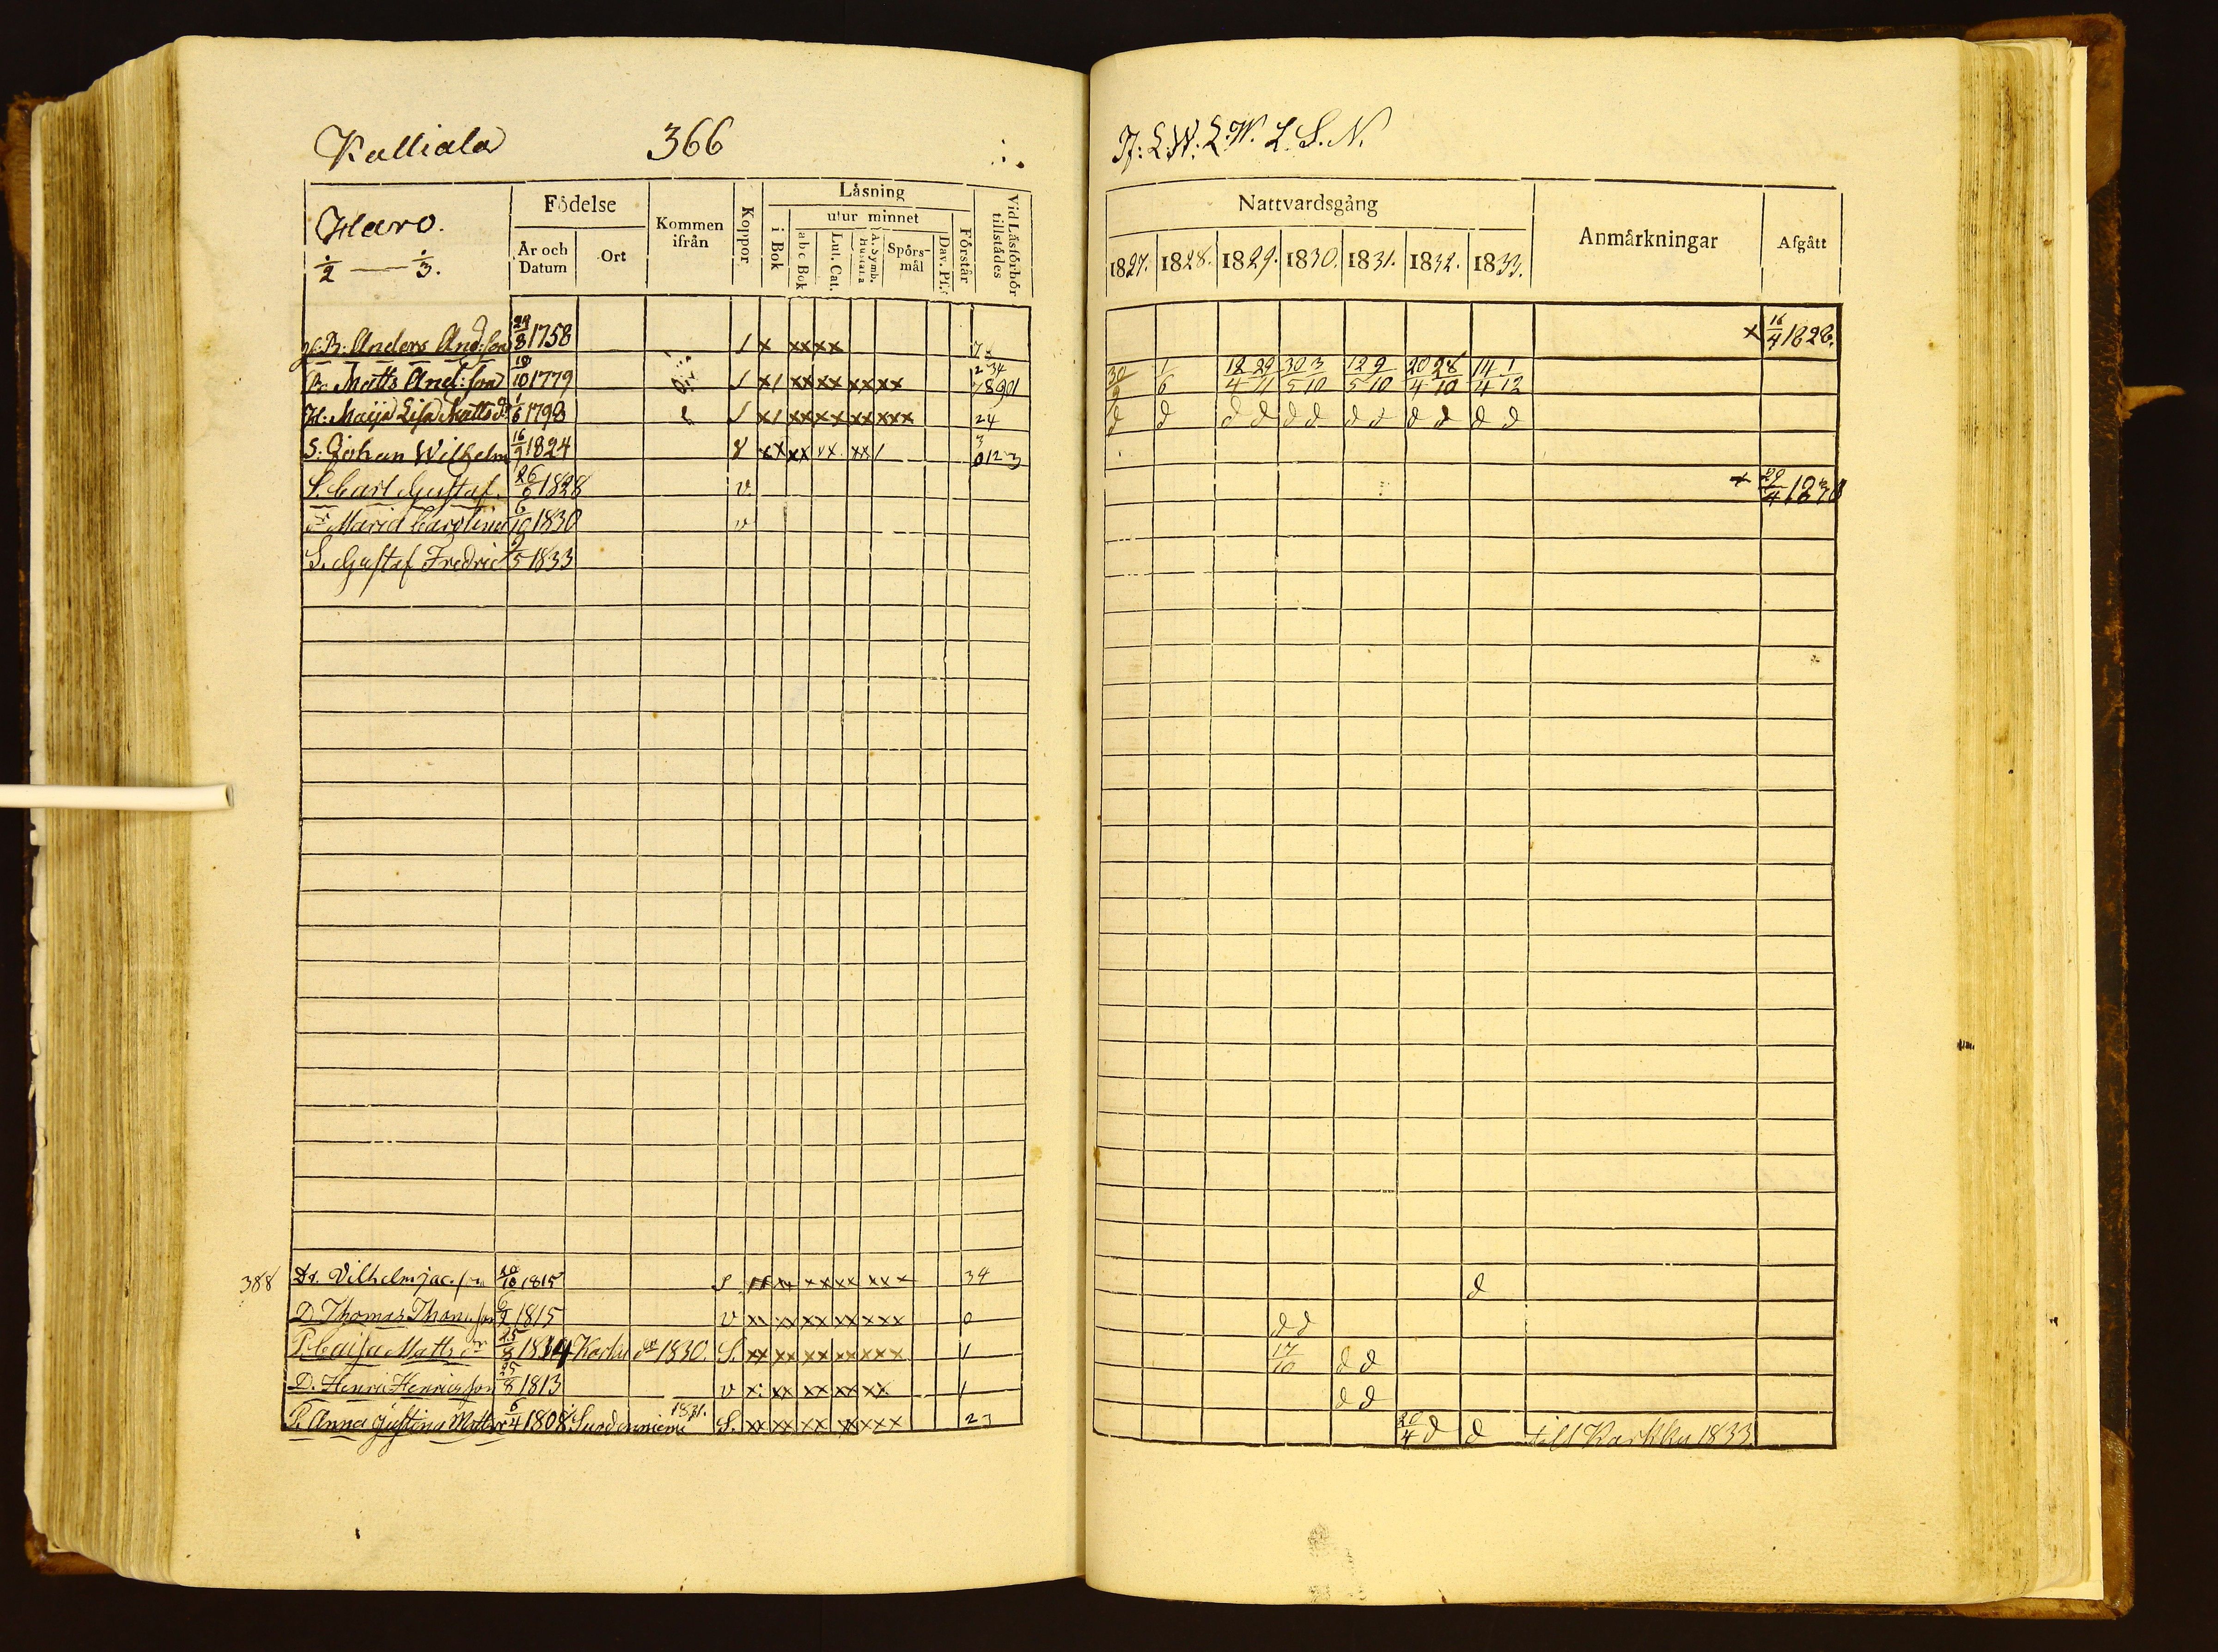 Kalliala 366
Haro.
1/2 — 1/3.
Födelse
År och Datum
Ort
Kommen ifrån
Koppor
Läsning
i Bok
utur minnet
a b c Bok
Lut. Cat.
A. Symb. Hustafla
Spörs-mål
Dav. Ps.
Förstår
Vid Läsförhör tillstädes
g.B: Anders And:son 29/8 1758 S x xx xx 7
B: Matts And:son 18/10 1779 S x/ xx xx xx xx 234 78901
H: Maija Lisa Matts dr 1/6 1798 S x/ xx xx xx xxx 24
S: Johan Wilhelm 16/9 1824 v xx xx xx xx/ 3 0123
S. Carl Gustaf. 26/6 1828 v.
dr Maria Carolina 6/10 1830 v
S. Gustaf Fredric 9/5 1833
388 Dr. Vilhelm Jac.son 20/10 1815 S xx xx xx xx xxx 34
D. Thomas Thom.son 6/2 1815 v xx xx xx xx xxx 0
P. Caisa Matts dr 25/8 1814 Karku 1830. S. xx xx xx xx xxx 1
D. Henric Henricsson 25/8 1813 v x: xx xx xx xx 1
P. Anna Justina Matts dr 6/4 1808 Suodenniemi 1831. S. xx xx xx xx xxx 23
If: L.W. L.W. L. S. N.
Nattvardsgång
1827. 1828. 1829. 1830. 1831. 1832. 1833.
Anmärkningar
Afgått
x 16/4 1828.
30/9 1/6 12/4 29/11 30/5 3/10 12/5 9/10 20/4 28/10 14/4 1/12
d d d d d d d d d d d d
+ 29/4 1830
d
d d
17/10 d d
d d
20/4 d d till Karkku 1833.